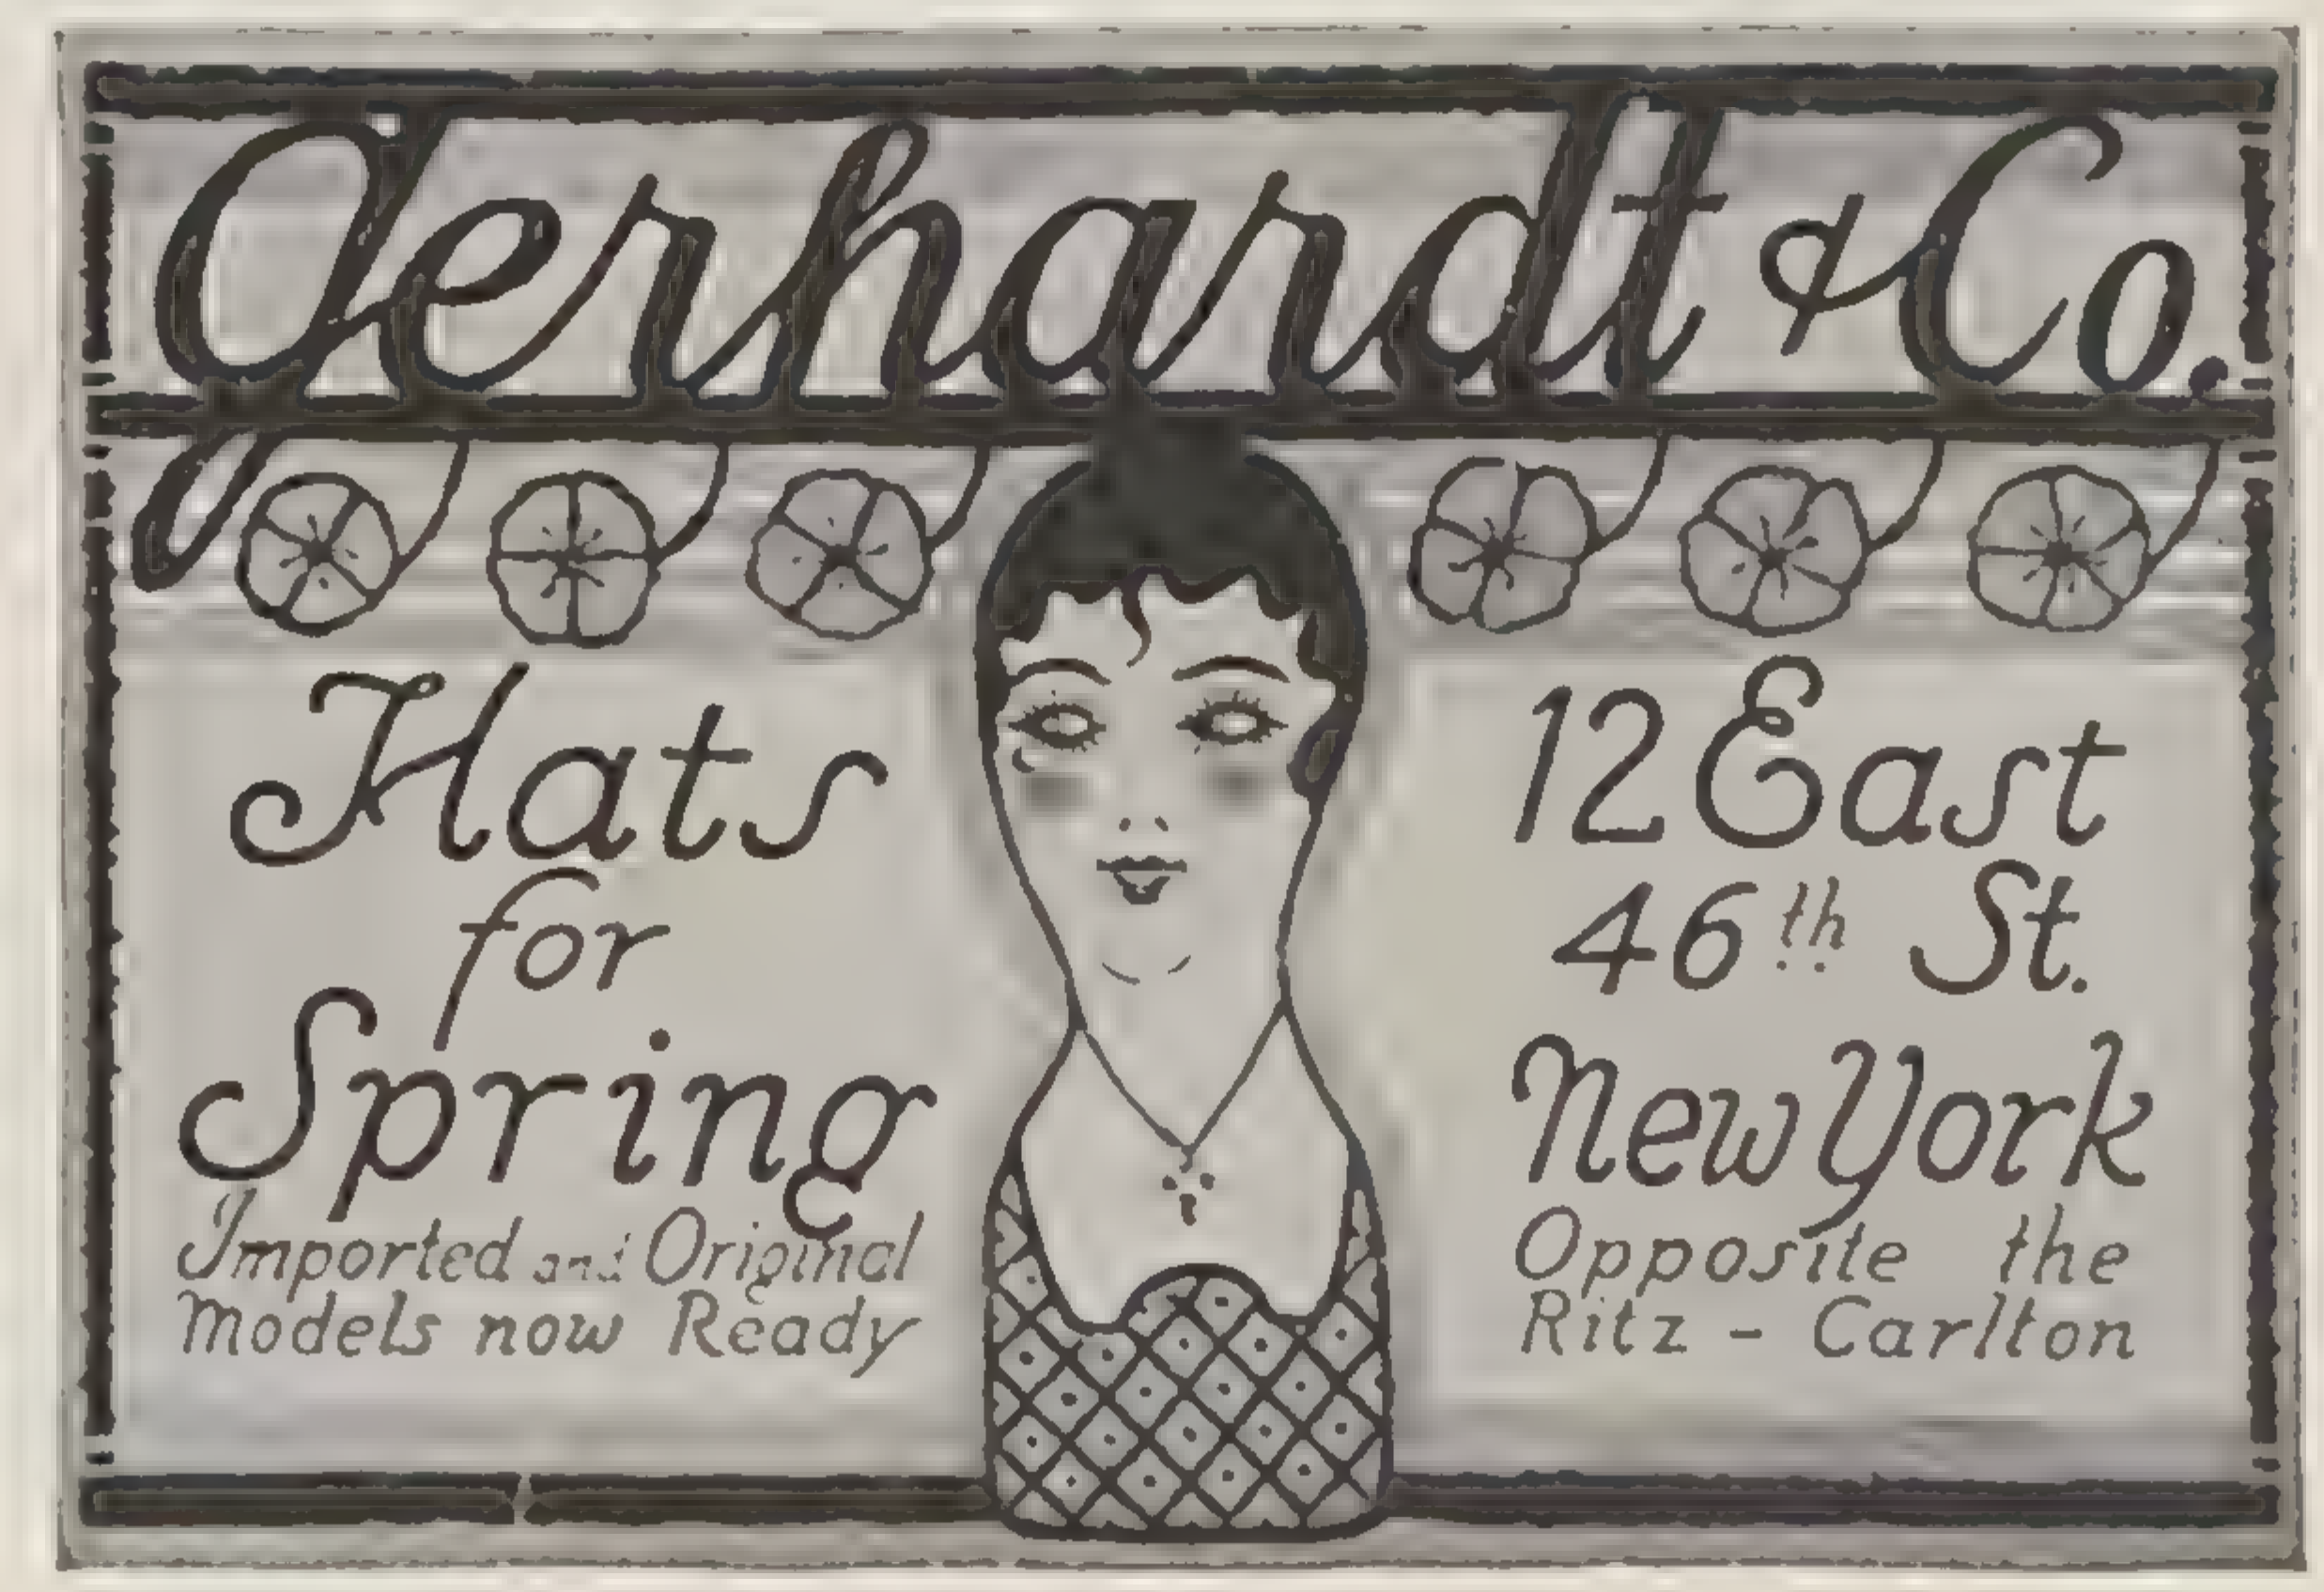 Gerhardt & Co.
Hats
for
Spring
Imported and Original
Models now Ready
12 East
46th St.
New York
Opposite the
Ritz - Carlton